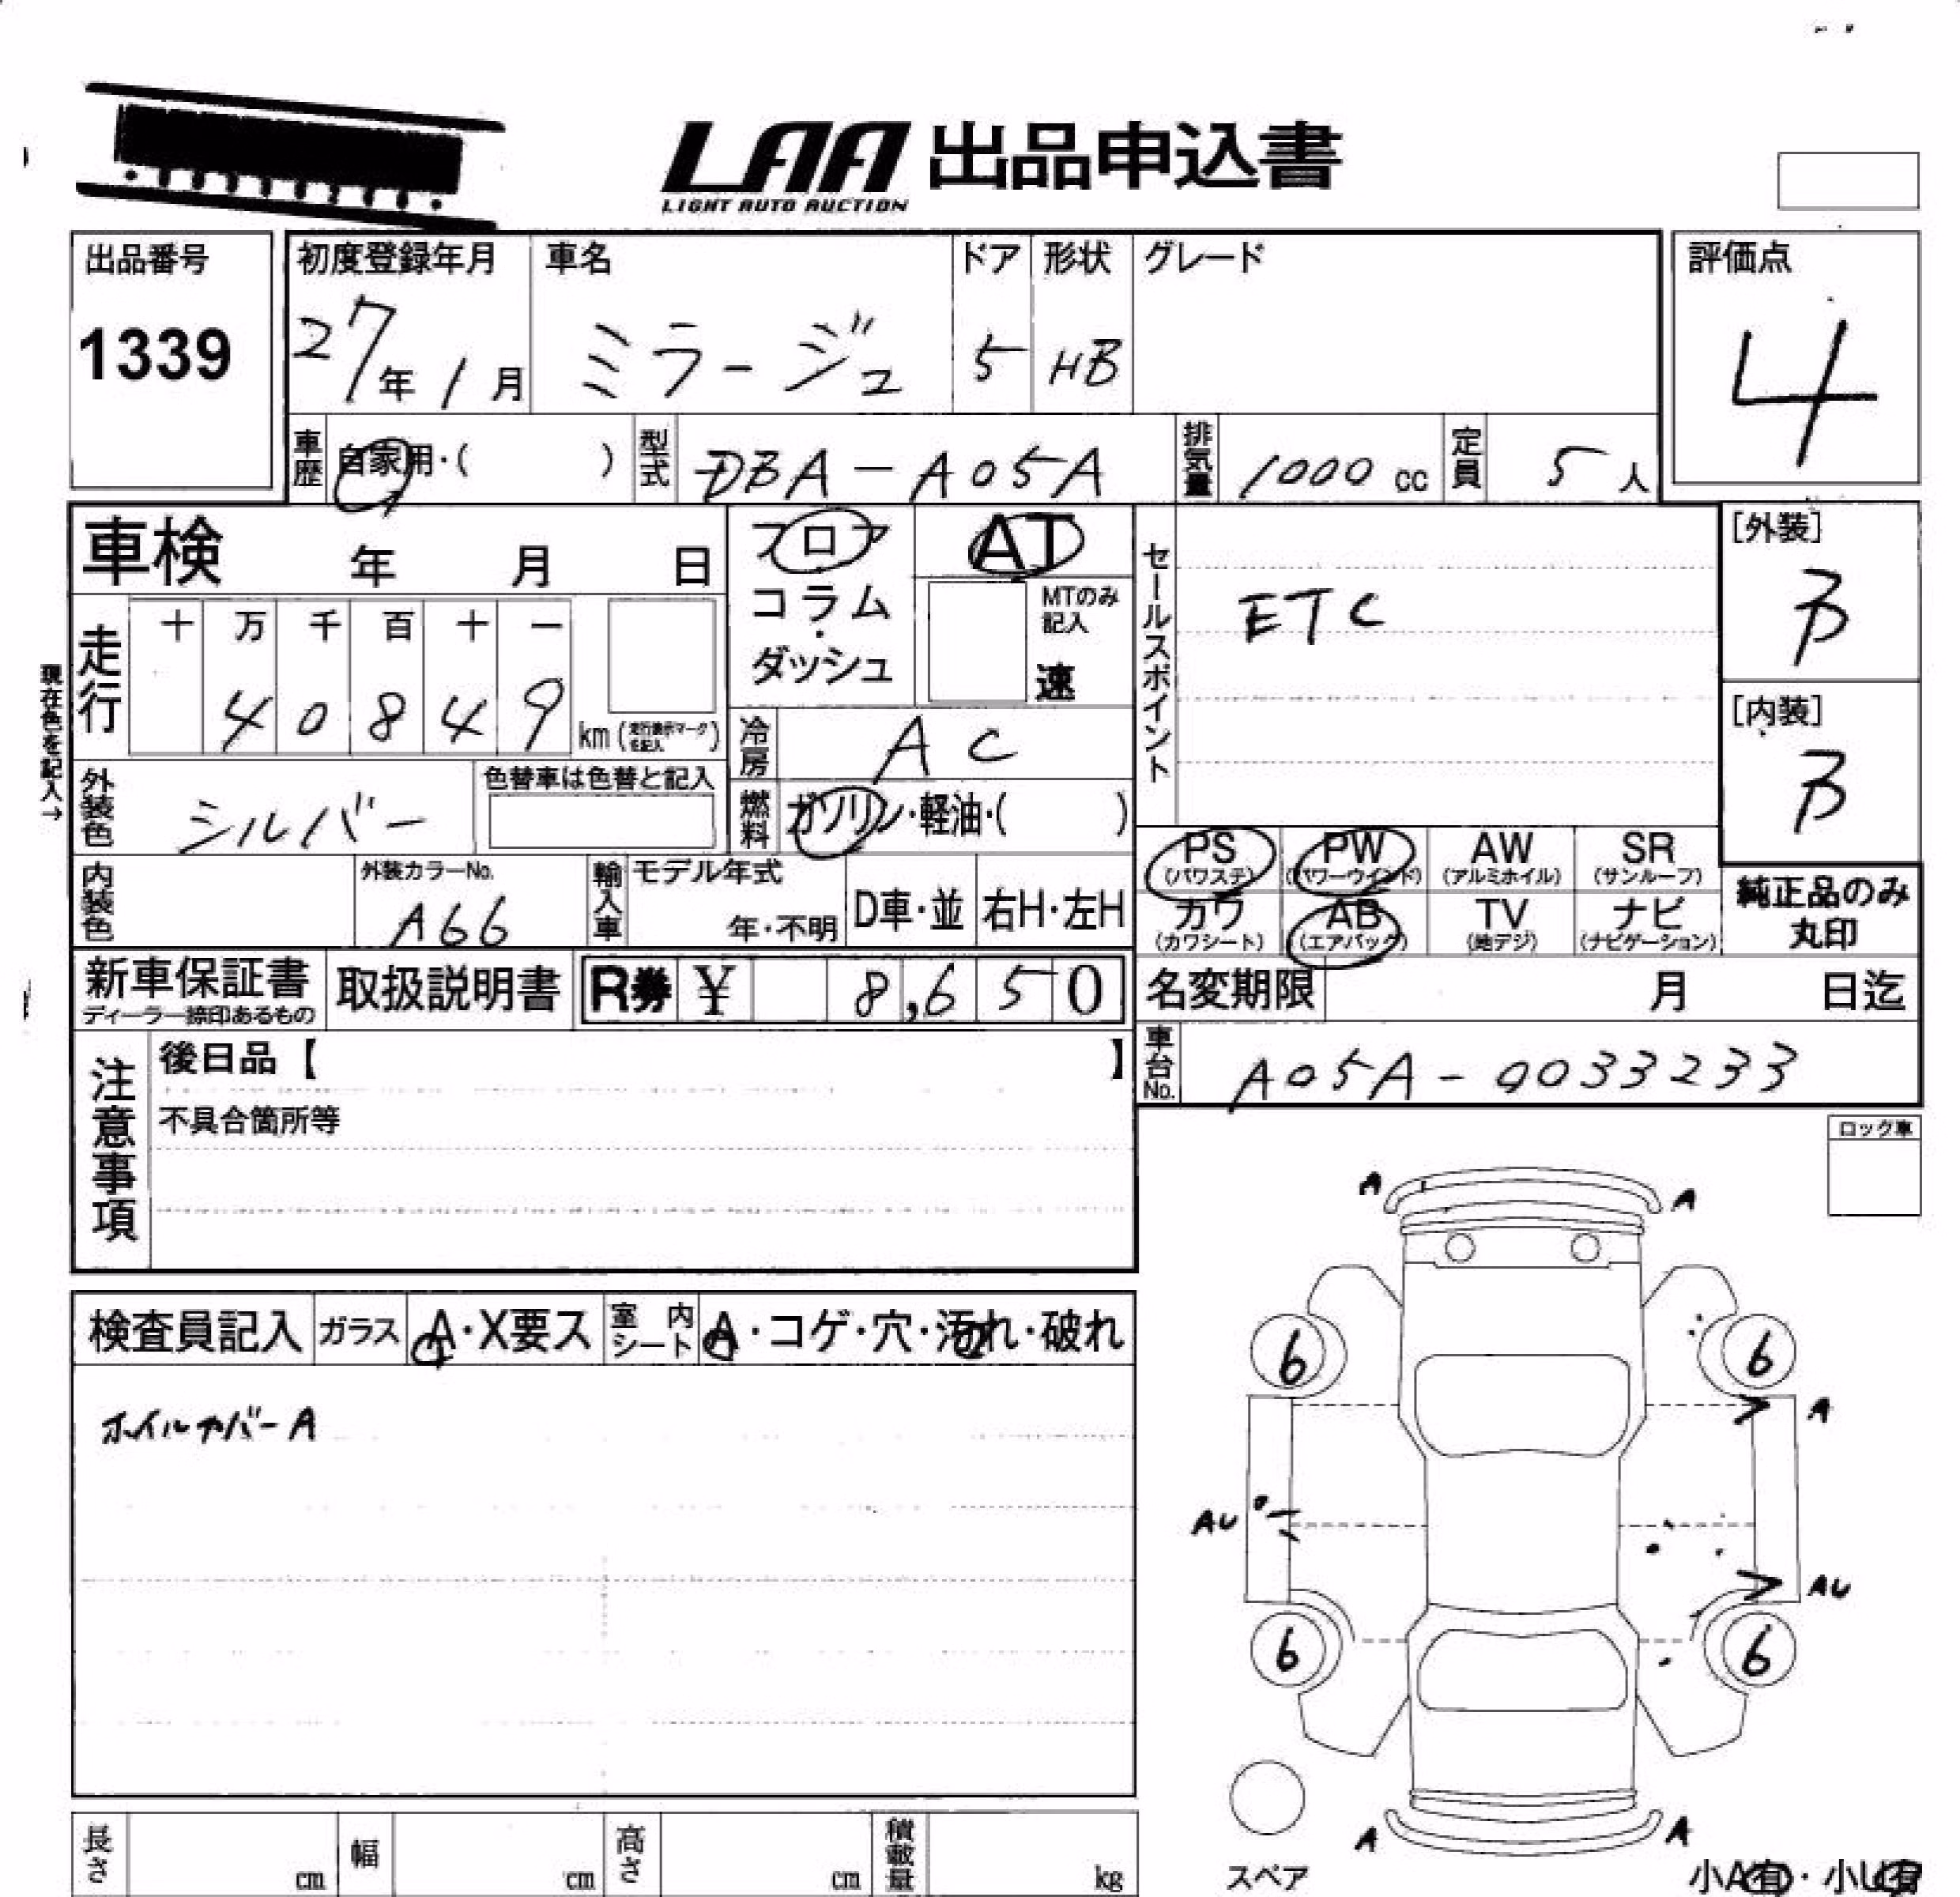 LAA 出品申込書
LIGHT AUTO AUCTION
出品番号
1339
初度登録年月
27年1月
車名
ミラージュ
ドア
5
形状
HB
グレード
評価点
4
車歴 自家用・( )
型式 DBA-A05A
排気量 1000 cc
定員 5人
車検 年 月 日
フロア
コラム
・
ダッシュ
AT
MTのみ
記入
速
セールスポイント
ETC
[外装]
B
[内装]
B
現在色を記入→
走行
十 万 千 百 十 一
4 0 8 4 9
km (走行表示マークを記入)
冷房 AC
外装色 シルバー
色替車は色替と記入
燃料 ガソリン・軽油・( )
PS
(パワステ)
PW
(パワーウインド)
AW
(アルミホイル)
SR
(サンルーフ)
カワ
(カワシート)
AB
(エアバッグ)
TV
(地デジ)
ナビ
(ナビゲーション)
純正品のみ
丸印
内装色
外装カラーNo.
A66
輸入車
モデル年式
年・不明
D車・並
右H・左H
新車保証書
ディーラー捺印あるもの
取扱説明書
R券 ¥ 8,650
名変期限 月 日迄
車台No. A05A-0033233
注意事項
後日品【 】
不具合箇所等
ロック車
検査員記入 ガラス A・X要ス 室内シート A・コゲ・穴・汚れ・破れ
ホイルカバーA
A A
6 6
A
AU
AU
6 6
A A
スペア
小A有・小U有
長さ cm
幅 cm
高さ cm
積載量 kg